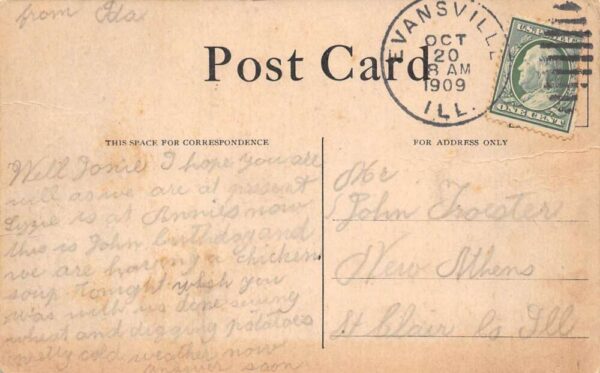 from Ida
Post Card
EVANSVILLE
OCT
20
8 AM
1909
ILL.
U.S. POSTAGE
ONE CENT
THIS SPACE FOR CORRESPONDENCE
FOR ADDRESS ONLY
Well I hope you are
well as we are at present
Lizzie is at Annies now
this is John birthday and
we are having a chicken
soup tonight wish you
was with us done sewing
wheat and digging potatoes
pretty cold weather now
answer soon
Mr
John
New Athens
St Clair Co Ill